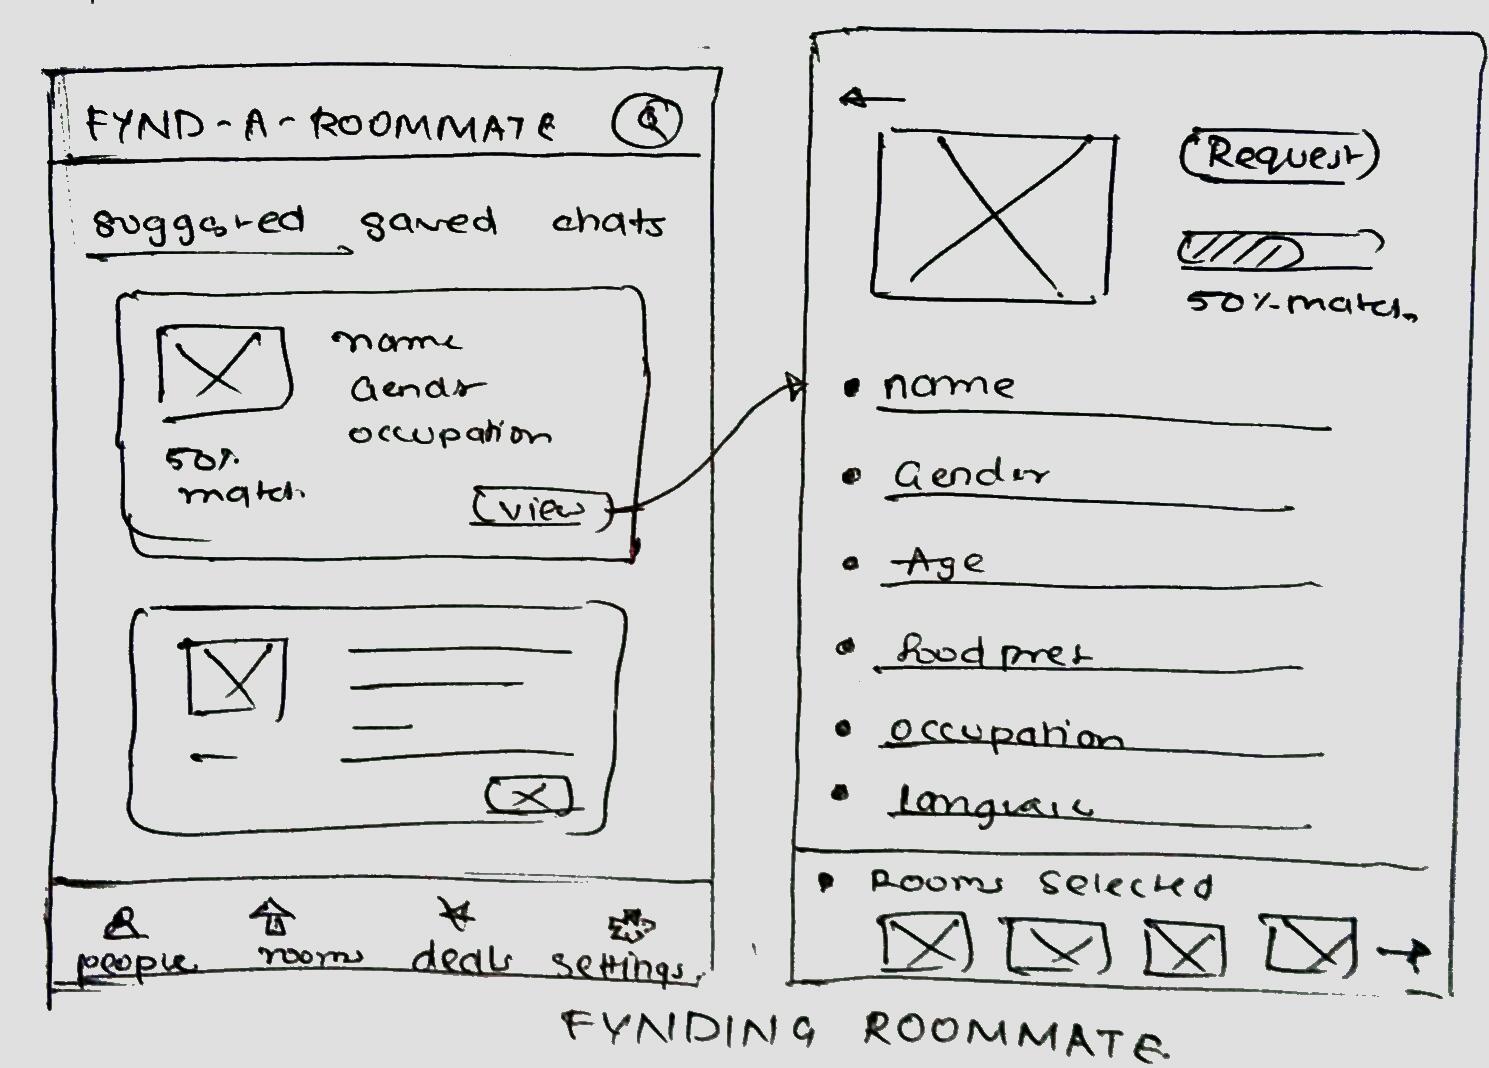 FYND-A-ROOMMATE
suggested saved chats
name
Gender
occupation
50%
match
view
people rooms deals settings
Request
50% match
name
Gender
Age
food pref
occupation
Language
Rooms selected
FYNDING ROOMMATE